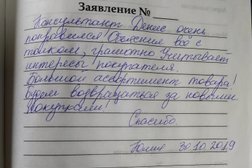 Заявление №
Консультант Денис очень
понравился. Объяснил всё с
толком, грамотно. Учитывает
интересы покупателя.
Большой ассортимент товара!
Будем возвращаться за новыми
покупками!
Спасибо
Юлия 30.10.2019